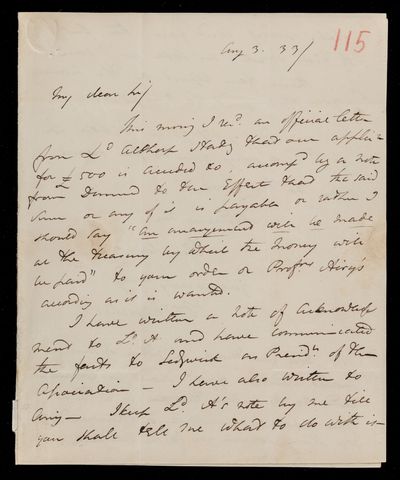 115
Aug 3. 33/
My dear Sir/
This morng I recd. an official letter
from Ld Althorp stating that our applicn
for £500 is acceded to, accompd by a note
from to the Effect that the said
Sum or any of it is payable or rather I
should say "an arrangement will be made
at the Treasury by which the money will
be paid" to your order or Profr Airy's
according as it is wanted.
I have written a note of acknowledg
ment to Ld A. and have communicated
the facts to Sedgwick as Presidt of the
Association — I have also written to
Airy — I keep Ld A's note by me till
you shall tell me what to do with it —